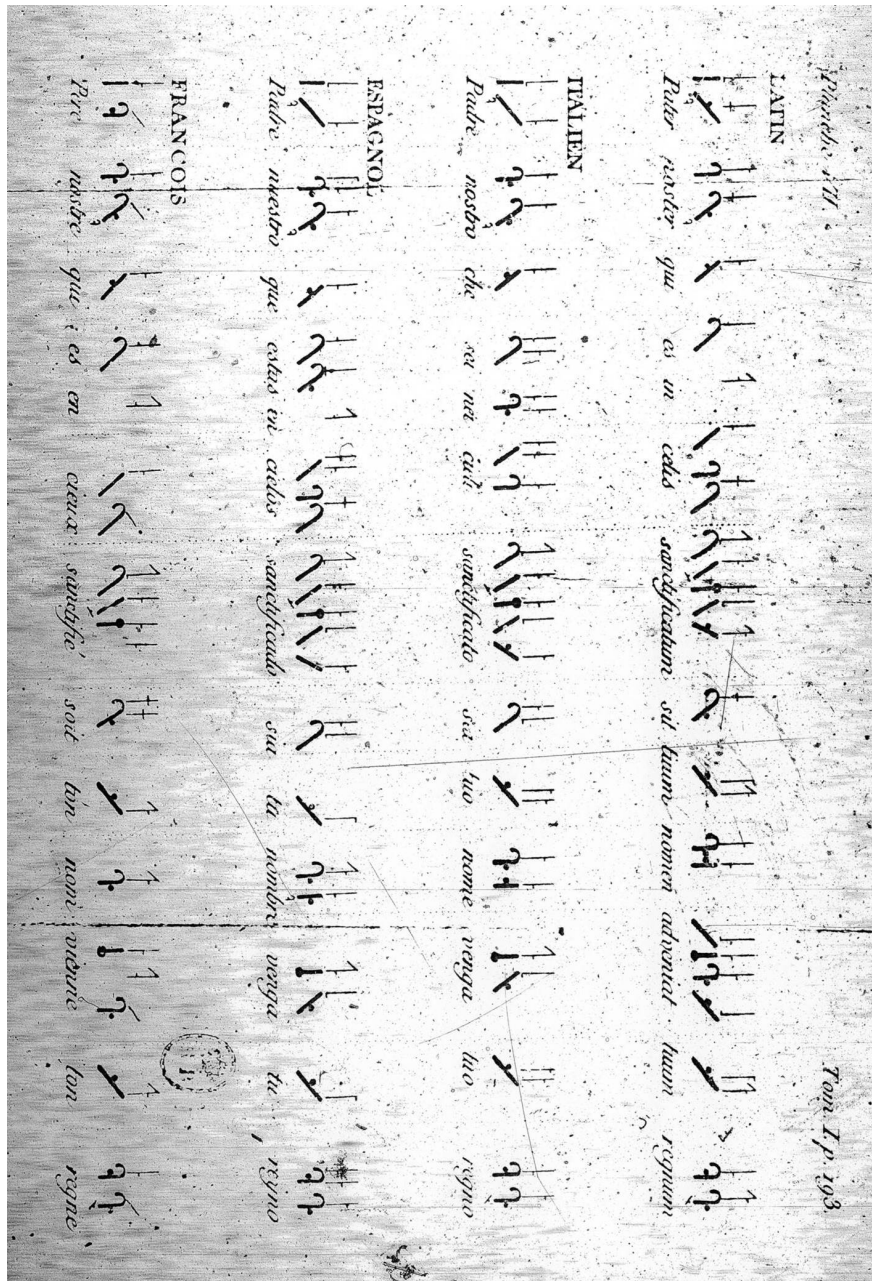 Planche VII. Tom I, p. 193
LATIN
Pater noster qui es in celis sanctificatum sit tuum nomen adveniat tuum regnum
ITALIEN
Padre nostro che sei nei cieli sanctificato sia tuo nome venga tuo regno
ESPAGNOL
Padre nuestro que estas in cielos sanctificado sia tu nombre venga tu reyno
FRANCOIS
Pere nostre que es en cieux sanctifié soit ton nom vienne ton regne